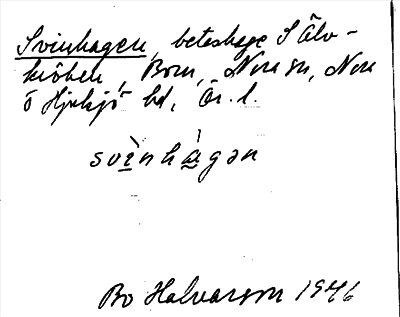 Svinhagen, beteshage S Älv-
kröken, Born, Nora sn, Nora
o Hjulsjö bd, Ör. l.
svìnhàgən
Bo Halvarson 1946